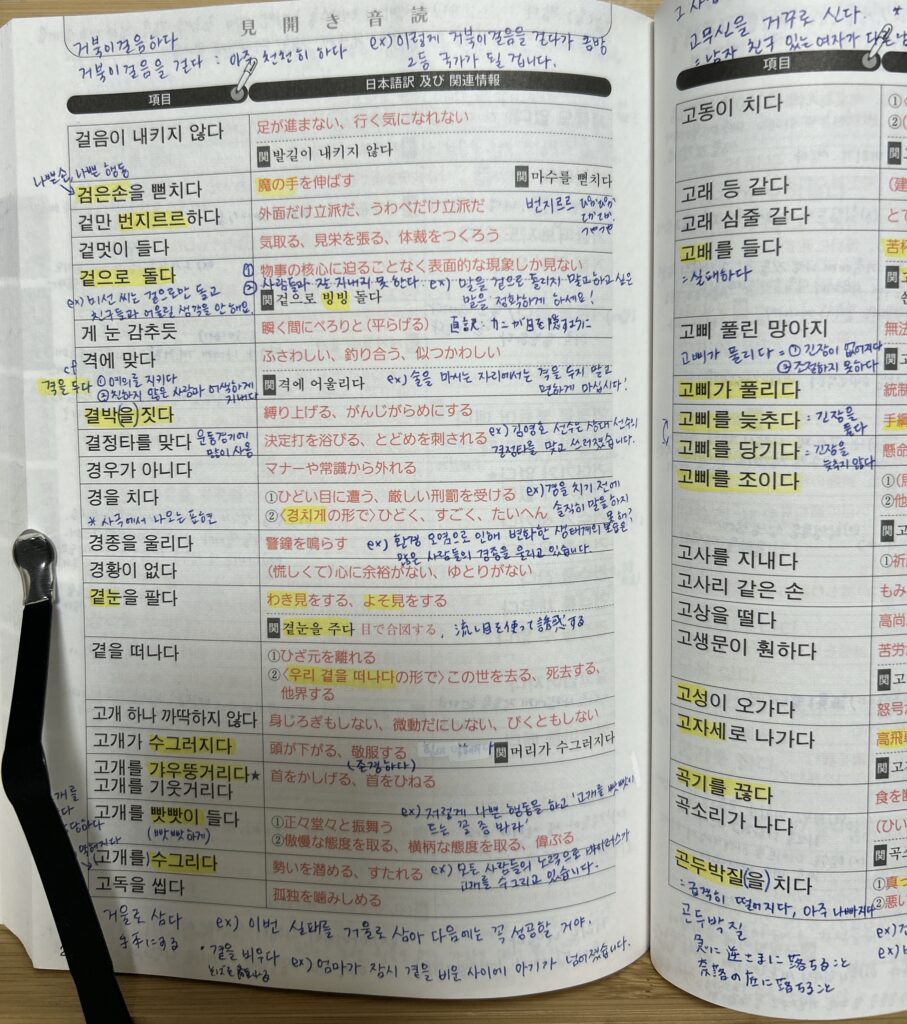 見開き音読
거북이걸음하다
거북이걸음을 걷다 : 아주 천천히 하다 ex) 이렇게 거북이걸음을 걷다가 금방
2등 국가가 될 겁니다.
項目 日本語訳 及び 関連情報
걸음이 내키지 않다 足が進まない、行く気になれない
関 발길이 내키지 않다
나쁜손, 나쁜 행동
검은손을 뻗치다 魔の手を伸ばす 関 마수를 뻗치다
겉만 번지르르하다 外面だけ立派だ、うわべだけ立派だ 번지르르 ぴかぴか
てかてか
つやつや
겉멋이 들다 気取る、見栄を張る、体裁をつくろう
겉으로 돌다 ① 物事の核心に迫ることなく表面的な現象しか見ない
② 사람들과 잘 지내지 못한다. ex) 말을 겉으로 돌리지 말고 하고 싶은
関 겉으로 빙빙 돌다 말을 정확하게 하세요!
ex) 미선 씨는 겉으로만 돌고
친구들과 어울릴 생각을 안 해요.
게 눈 감추듯 瞬く間にぺろりと（平らげる） 直訳: カニが目を隠すように
격에 맞다 ふさわしい、釣り合う、似つかわしい
関 격에 어울리다 ex) 술을 마시는 자리에서는 격을 두지 말고
편하게 마십시다!
cf
격을 두다 ① 예의를 지키다
② 친하지 않은 사람마냥 어색하게
지내다
결박(을)짓다 縛り上げる、がんじがらめにする
결정타를 맞다 운동경기에 많이 사용 決定打を浴びる、とどめを刺される ex) 김영호 선수는 상대 선수의
결정타를 맞고 쓰러졌습니다.
경우가 아니다 マナーや常識から外れる
경을 치다 ①ひどい目に遭う、厳しい刑罰を受ける ex) 경을 치기 전에
솔직히 말을 하지
못해?
* 사극에서 나오는 표현 ②〈경치게の形で〉ひどく、すごく、たいへん
경종을 울리다 警鐘を鳴らす ex) 환경 오염으로 인해 변화한 생태계의 모습은
많은 사람들의 경종을 울리고 있습니다.
경황이 없다 （慌しくて）心に余裕がない、ゆとりがない
곁눈을 팔다 わき見をする、よそ見をする
関 곁눈을 주다 目で合図する, 流し目を使って誘惑する
곁을 떠나다 ①ひざ元を離れる
②〈우리 곁을 떠나다の形で〉この世を去る、死去する、
他界する
고개 하나 까딱하지 않다 身じろぎもしない、微動だにしない、びくともしない
고개가 수그러지다 頭が下がる、敬服する 関 머리가 수그러지다
(존경하다)
고개를 갸우뚱거리다★ 首をかしげる、首をひねる
고개를 기웃거리다
고개를 빳빳이 들다 ①正々堂々と振舞う
②傲慢な態度を取る、横柄な態度を取る、偉ぶる
(빳빳하게)
ex) 저렇게 나쁜 행동을 하고 '고개를 빳빳이
드는 꼴 좀 봐라'
(고개를)수그리다 勢いを潜める、すたれる ex) 모든 사람들의 노력으로 바이러스가
고개를 수그리고 있습니다.
고독을 씹다 孤独を噛みしめる
거울로 삼다 ex) 이번 실패를 거울로 삼아 다음에는 꼭 성공할 거야.
手本にする
• 곁을 비우다 ex) 엄마가 잠시 곁을 비운 사이에 아기가 넘어졌습니다.
고무신을 거꾸로 신다.
= 남자 친구 있는 여자가 다른
項目
고동이 치다
고래 등 같다
고래 심줄 같다
고배를 들다 苦杯
= 실패하다
고삐 풀린 망아지 無法
고삐가 풀리다 = ① 긴장이 없어지다
② 조절하지 못하다
고삐가 풀리다 統制
고삐를 늦추다 : 긴장을
풀다 手綱
고삐를 당기다 : 긴장을
늦추지 않다 懸命
고삐를 조이다
고사를 지내다
고사리 같은 손 もみ
고상을 떨다 高尚
고생문이 훤하다 苦労
고성이 오가다 怒号
고자세로 나가다 高飛
곡기를 끊다 食を断
곡소리가 나다
곤두박질(을)치다 ①真っ
②悪い
= 급격히 떨어지다, 아주 나빠지다
곤두박질
急に逆さまに落ちること
奈落の底に落ちること